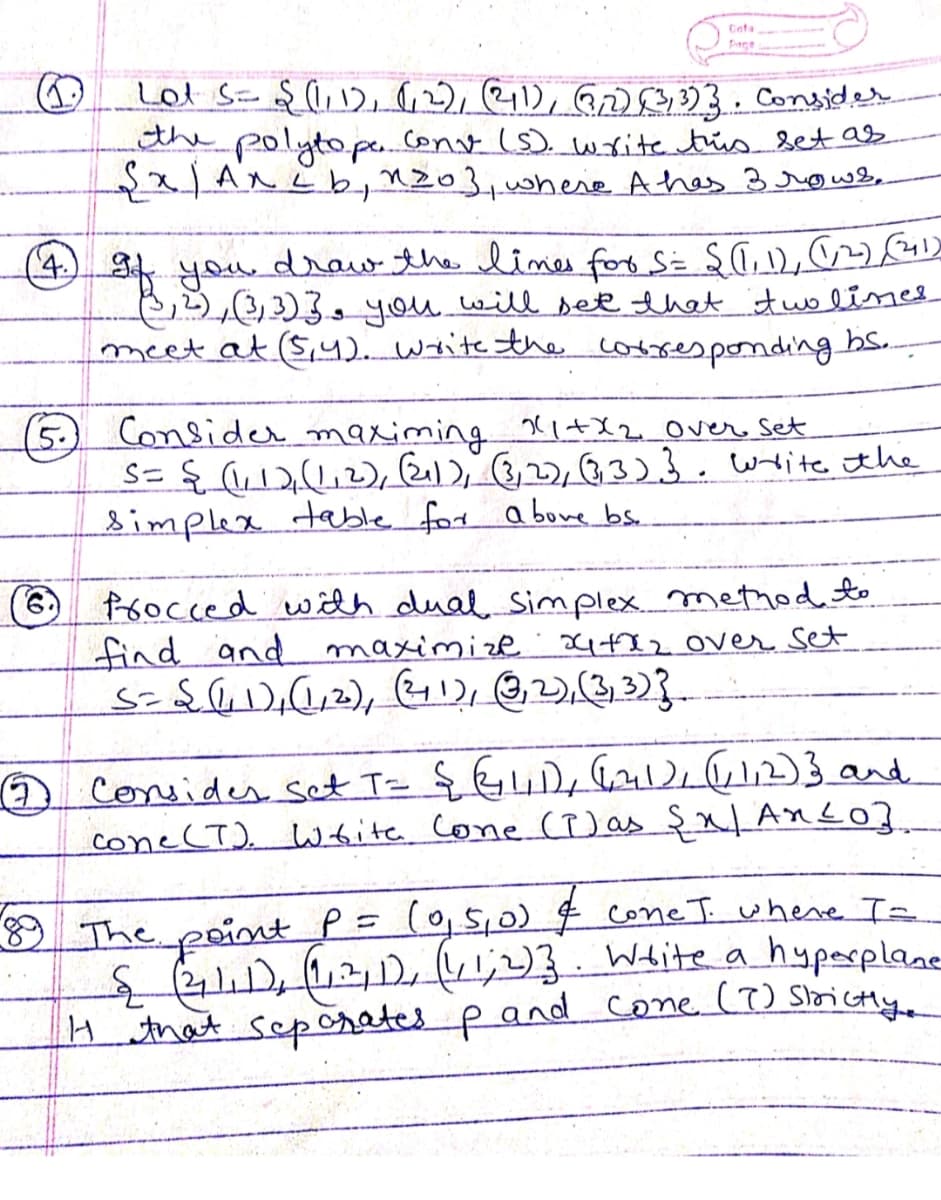 Date
Page
(1.) Let S= {(1,1), (1,2), (2,1), (3,2) (3,3)}. Consider
the polytope conv (S). write this set as
{x | Ax ≤ b, x≥0}, where A has 3 rows.
(4.) If you draw the lines for S= {(1,1), (1,2) (2,1)
(3,2), (3,3)}. you will see that two lines
meet at (5,4). write the corresponding bs.
(5.) Consider maximing x1+x2 over set
S= { (1,1),(1,2), (2,1), (3,2), (3,3) }. write the
simplex table for above bs.
(6.) Procced with dual simplex method to
find and maximize x1+x2 over set
S= {(1,1),(1,2), (2,1), (3,2),(3,3)}.
(7) Consider set T= { (2,1,1), (1,2,1), (1,1,2)} and
cone(T). Write Cone (T) as {x | Ax ≤ 0}.
(8) The point P = (0,5,0) ∉ cone T. where T=
{ (2,1,1), (1,2,1), (1,1,2)}. Write a hyperplane
H that separates p and Cone (T) strictly.